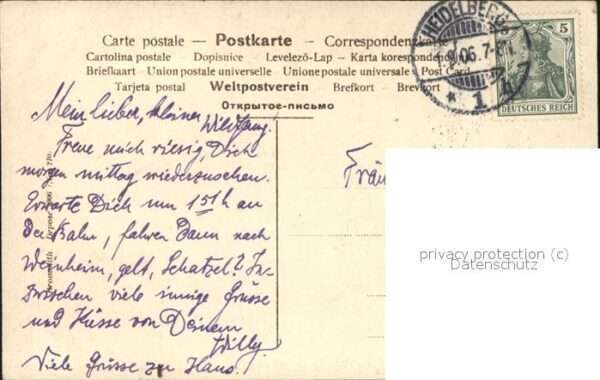 Carte postale — Postkarte — Correspondenzkarte
Cartolina postale Dopisnice Levelező-Lap — Karta korespondencyjna
Briefkaart Union postale universelle Unione postale universale Post Card
Tarjeta postal Weltpostverein Brefkort Brevkort
Открытое-письмо
HEIDELBERG
.06. 7-8N.
* 1
5
DEUTSCHES REICH
Mein lieber, kleiner
Wildfang.
Freue mich riesig, Dich
morgen mittag wiederzusehen.
Erwarte Dich um 151 h an
der Bahn, fahren dann nach
Weinheim, gelt, Schatzel? In-
zwischen viele innige Grüsse
und Küsse von Deinem
Willy.
Viele Grüsse zu Haus.
Fräu
privacy protection (c)
Datenschutz